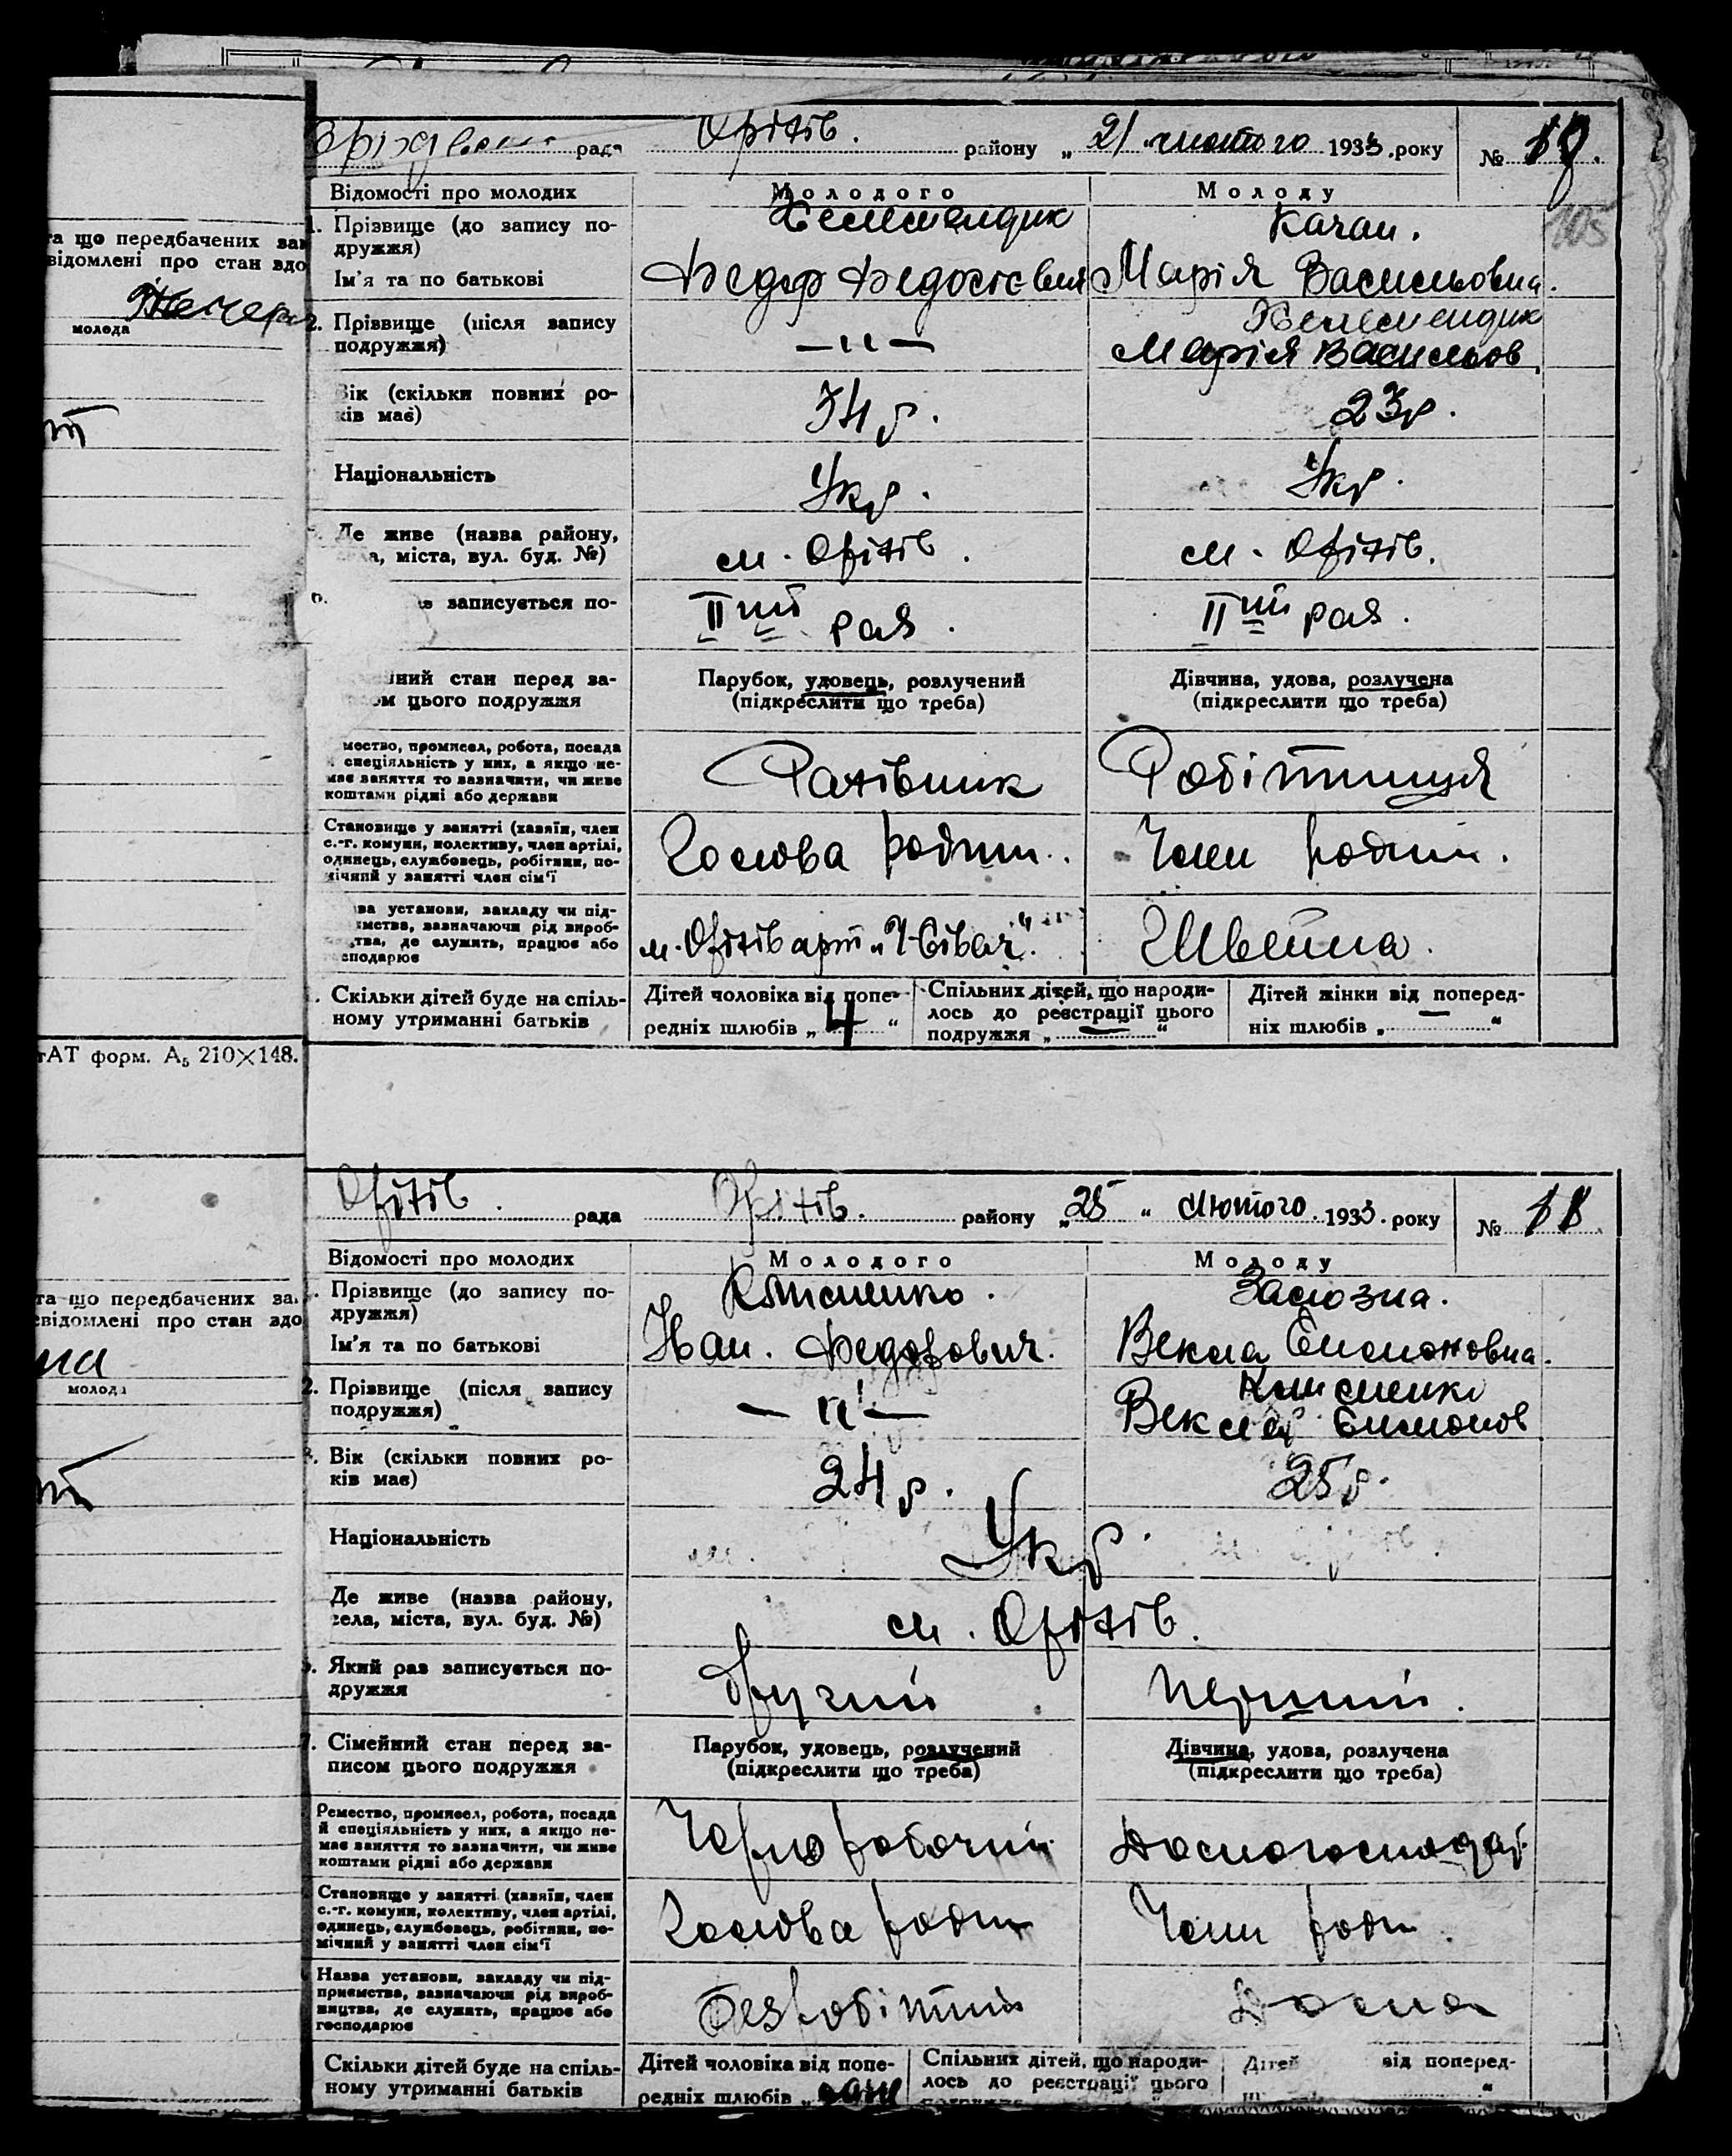 рада Оріхів. району „21 "лютого 1933.року № 10.
Відомості про молодих Молодого Молоду
1. Прізвище (до запису по- Келеменджик Качан.
дружжя)
Ім'я та по батькові Федор Федосієвич Марія Васильовна.
2. Прізвище (після запису Келеменджик
подружжя) —"— Марія Васильов.
Вік (скільки повних ро-
ків має) 34 р. 23 р.
Національність Укр. Укр.
Де живе (назва району,
міста, вул. буд. №) м. Оріхів. м. Оріхів.
записується по- ІІ ий раз. ІІ ий раз.
стан перед за- Парубок, удовець, розлучений Дівчина, удова, розлучена
цього подружжя (підкреслити що треба) (підкреслити що треба)
промисел, робота, посада
спеціяльність у них, а якщо не-
має заняття то зазначити, чи живе Робітниця
коштами рідні або держави
Становище у занятті (хазяїн, член
с.-г. комуни, колективу, член артілі, Голова родин. Член родини.
одинець, службовець, робітник, по-
мічний у занятті член сім'ї
установи, закладу чи під-
зазначаючи рід вироб-
де служить, працює або м. Оріхів арт Швейна.
Скільки дітей буде на спіль- Дітей чоловіка від попе- Спільних дітей, що народи- Дітей жінки від поперед-
ному утриманні батьків редніх шлюбів „ 4 “ лось до реєстрації цього ніх шлюбів „ — “
подружжя „ — “
105
та що передбачених
відомлені про стан
молода
АТ форм. А5 210×148.
Оріхів. рада Оріхів. району „25 “ лютого. 1933. року № 11.
Відомості про молодих Молодого Молоду
Прізвище (до запису по- Заслозна.
дружжя)
Ім'я та по батькові Іван. Федорович. Векла Симоновна.
2. Прізвище (після запису
подружжя) —"— Векла Симонов
Вік (скільки повних ро-
ків має) 24 р. 25 р.
Національність Укр.
Де живе (назва району,
села, міста, вул. буд. №) м. Оріхів.
Який раз записується по- Другий Перший.
дружжя
Сімейний стан перед за- Парубок, удовець, розлучений Дівчина, удова, розлучена
писом цього подружжя (підкреслити що треба) (підкреслити що треба)
Ремество, промисел, робота, посада
й спеціяльність у них, а якщо не- Чорноробочий Домогосподар.
має заняття то зазначити, чи живе
коштами рідні або держави
Становище у занятті (хазяїн, член
с.-г. комуни, колективу, член артілі, Голова родин Член родин.
одинець, службовець, робітник, по-
мічний у занятті член сім'ї
Назва установи, закладу чи під-
приємства, зазначаючи рід вироб- безробітний Дома
ництва, де служить, працює або
господарює
Скільки дітей буде на спіль- Дітей чоловіка від попе- Спільних дітей, що народи- Дітей від поперед-
ному утриманні батьків редніх шлюбів „ лось до реєстрації цього
та що передбачених
відомлені про стан
молода